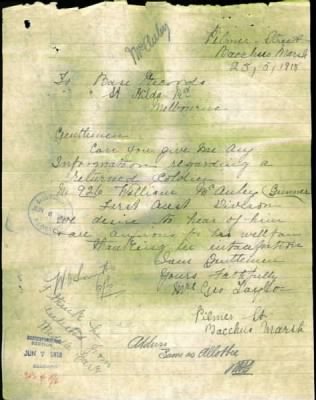 McAuley
Pilmer Street
Bacchus Marsh
25, 5, 1918
To Base Records
St Kilda Rd
Melbourne
Gentlemen
Can you give me Any
Information regarding a
returned Soldier
No 926 William McAuley (Gunner
First Aust Division
we desire to hear of him
& are anxious for his welfare
Thanking in anticipation
I am Gentlemen
Yours Faithfully
Mrs Geo
Pilmer St
Bacchus Marsh
JUN 7 1918
Address
Same as Allottee